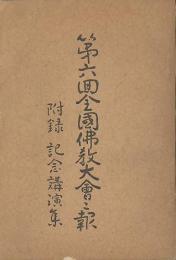 第六回全國佛教大會々報
附録 記念講演集